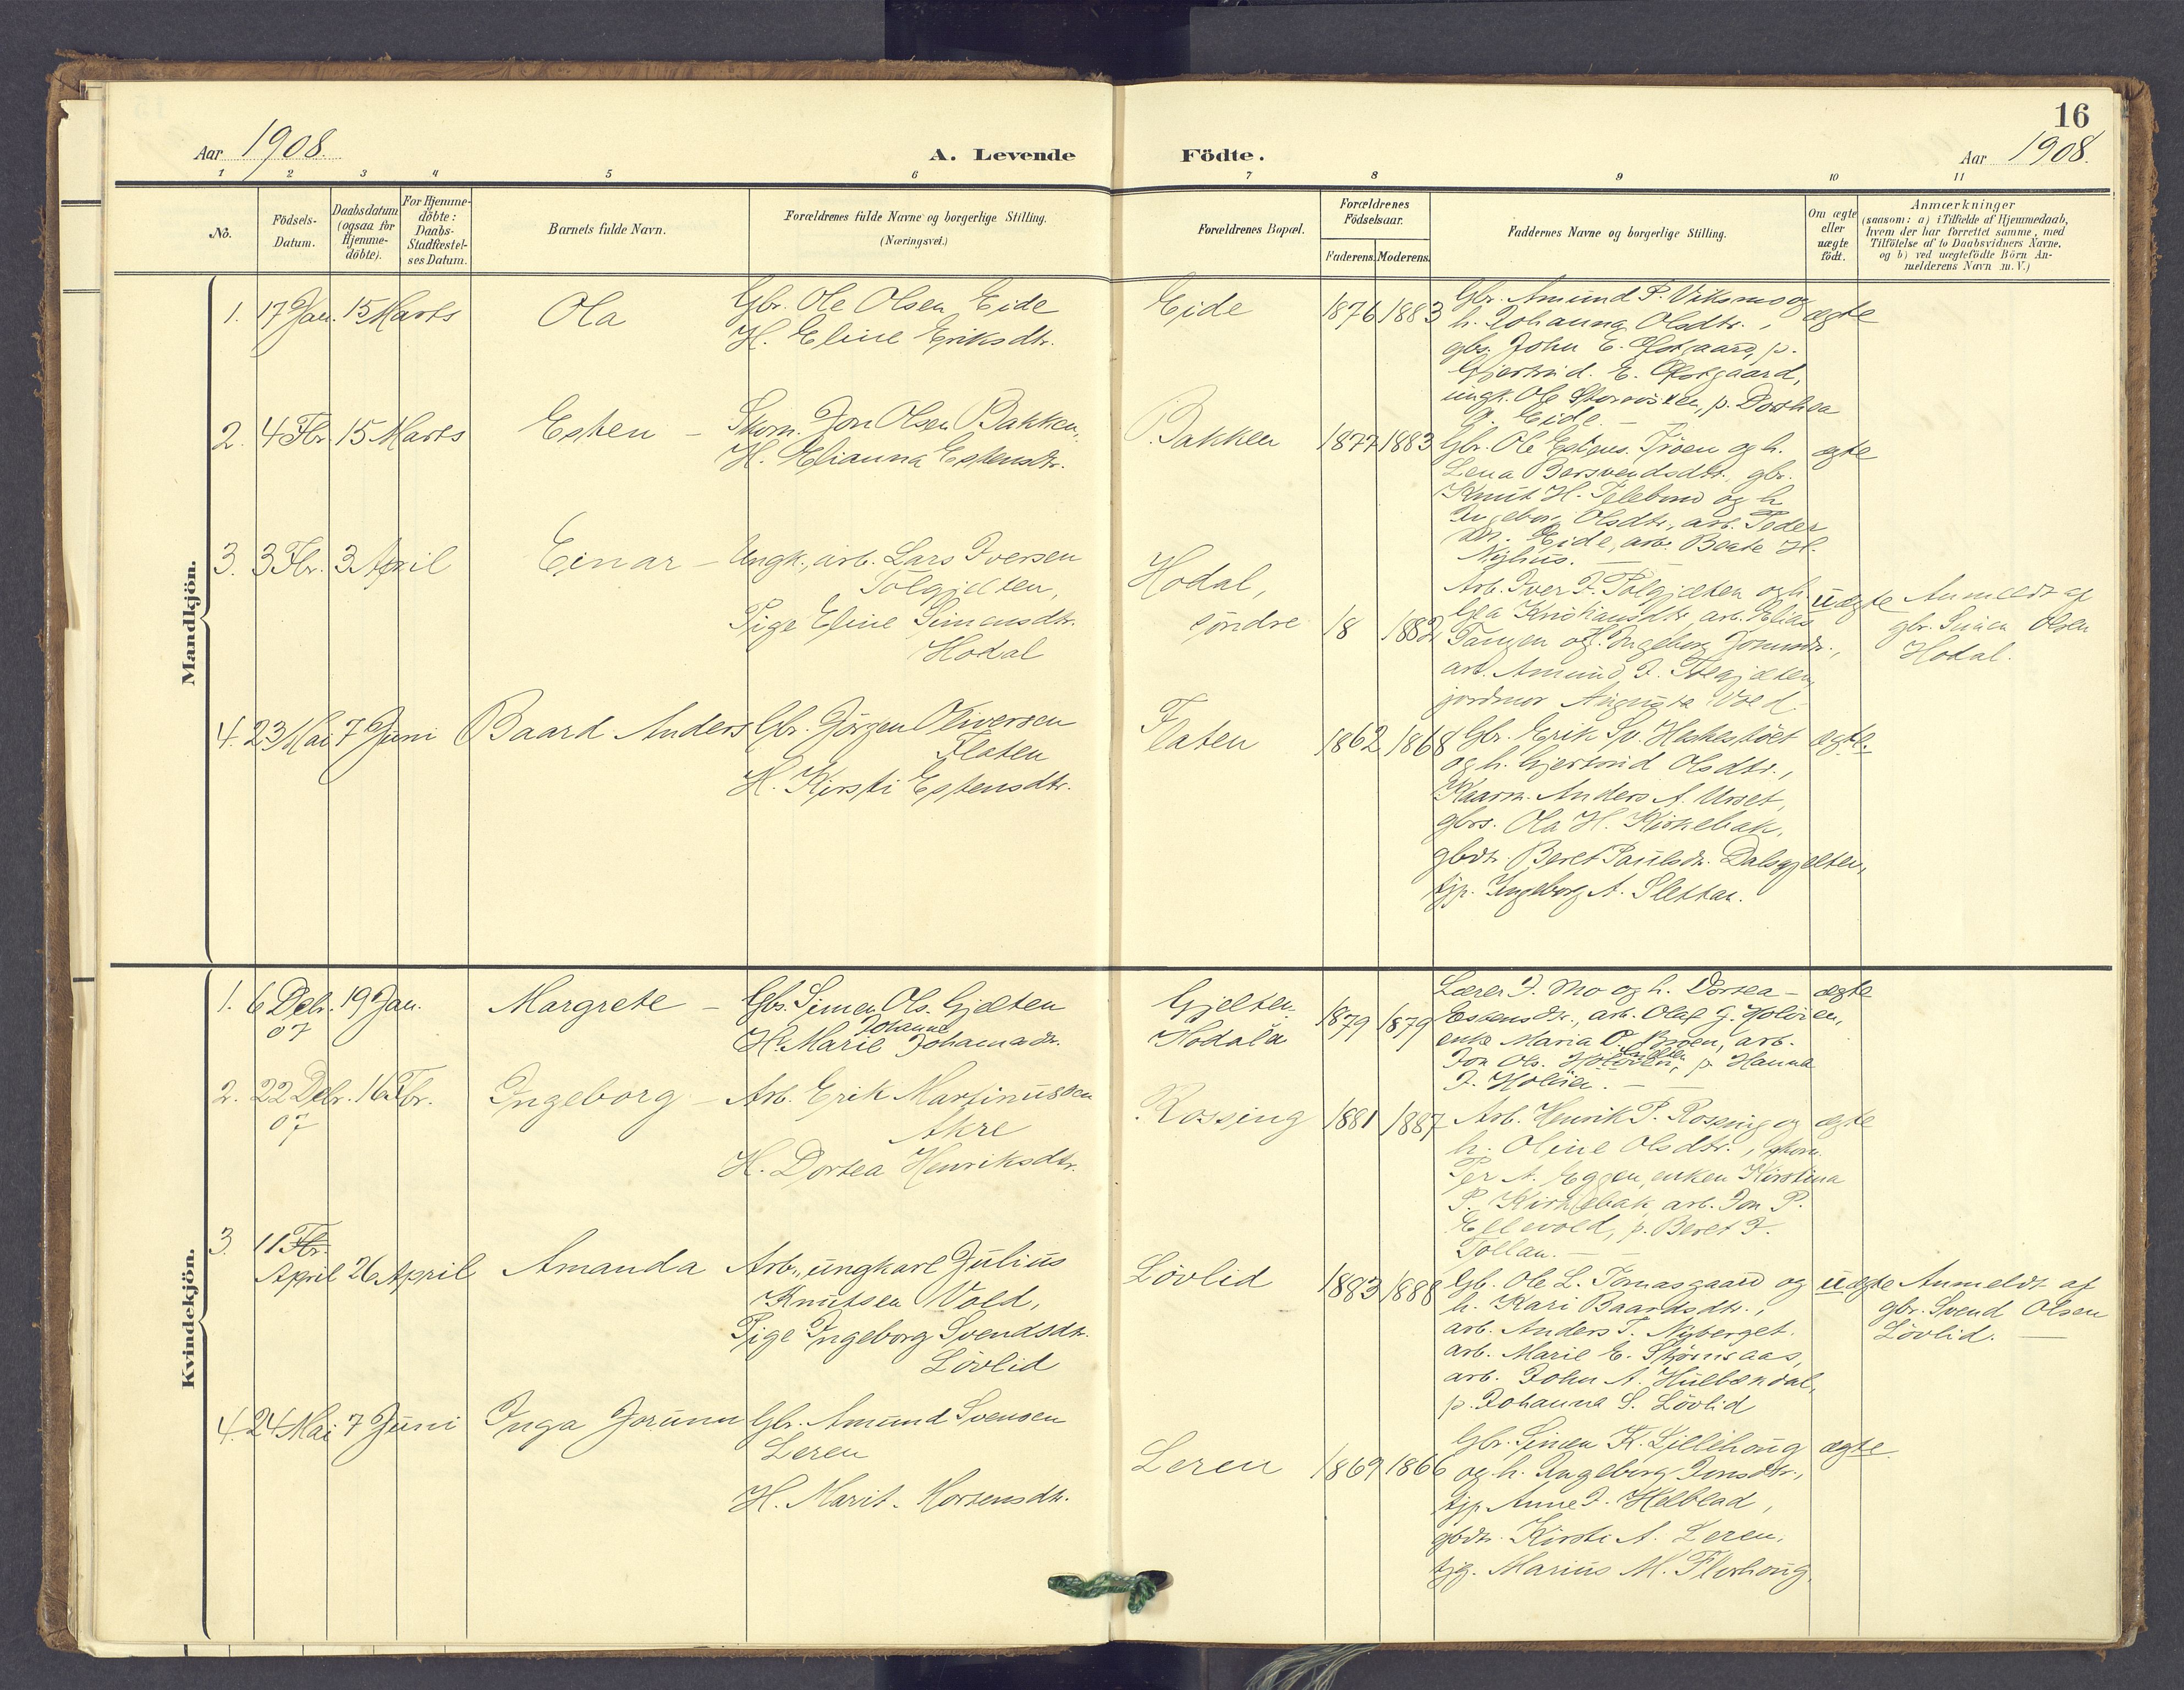 16
Aar 1908.
A. Levende Födte.
Aar 1908.
1 2 3 4 5 6 7 8 9 10 11
No.
Födsels-
Datum.
Daabsdatum
(ogsaa for
Hjemme-
döbte).
For Hjemme-
döbte:
Daabs-
Stadfæstel-
ses Datum.
Barnets fulde Navn.
Forældrenes fulde Navne og borgerlige Stilling.
(Næringsvei.)
Forældrenes Bopæl.
Forældrenes
Födselsaar.
Faderens. Moderens.
Faddernes Navne og borgerlige Stilling.
Om ægte
eller
uægte
födt.
Anmærkninger
(saasom: a) i Tilfælde af Hjemmedaab,
hvem der har forrettet samme, med
Tilföielse af to Daabsvidners Navne.
og b) ved uægtefödte Börn An-
melderens Navn m. V.)
Mandkjön.
1. 17 Jan. 15 Marts
Ola
Gbr. Ole Olsen Eide
H. Eline Eriksdtr.
Eide
1876 1883
Gbr. Amund P. Viksmo og
h. Johanna Olsdtr.,
gbs. John E. , p.
Gjertrud. E. ,
ungk. Ole , p. Dorthea
O. Eide.
ægte
2. 4 Fbr. 15 Marts
Esten –
Jon Olsen Bakken,
H. Elianna Estensdtr.
Bakken
1877 1883
Gbr. Ole Estens. og h.
Lena Bersvendsdtr., gbr.
Knut H. og h
Ingeborg Olsdtr., arb. Peder
Eide, arb. Beate H.
Nyhus. —
ægte
3. 3 Fbr. 3 April
Einar –
Ungk., arb. Lars Iversen
Tolgjelten,
Pige Eline Simensdtr.
Hodal
Hodal,
söndre
18 1882
Arb. Iver og h
Kristiansdtr., arb. Elias
Tangen og h. Ingeborg
arb. Amund
jordmor Augusta Vold.
uægte
Anmeldt af
gbr. Simen Olsen
Hodal.
4. 23 Mai 7 Juni
Baard Anders
Gbr. Jörgen Oliversen
Flaten
H. Kirsti Estensdtr.
Flaten
1862 1868
Gbr. Erik Sv.
og h. Gjertrud Olsdtr.,
Anders A. Urset,
gbrs. Ola H. Kirkebak,
gbdtr. Beret Paulsdtr. Dalsgjelten,
tjp. Ingeborg A. Slettan.
ægte.
Kvindekjön.
1. 6 Debr. 19 Jan.
07
Margrete –
Gbs. Simen Ols. Gjelten
Johanne
H. Marie
Gjelten
Hodala
1879 1879
Lærer J. Mo og h. Dortea –
Estensdtr., arb. Olaf J. Holöien,
enke Maria O. , arb.
Jon Ols. , p. Hanna
J. Holöien. —
ægte
2. 22 Debr. 16 Fbr.
07
Ingeborg –
Arb. Erik Martinussen
Akre
H. Dortea Henriksdtr.
Rossing
1881 1887
Arb. Henrik P. Rossing og
h. Oline Olsdtr.,
Per A. Eggen, enken Kirstina
P. Kirkebak, arb. Jon P.
Ellevold, p. Beret J.
Tollan. —
ægte
3. 11 Fbr.
April 26 April
Amanda
Arb., ungkarl Julius
Knutsen Vold,
Pige Ingeborg Svendsdtr.
Lövlid
Lövlid
1883 1888
Gb. Ole L. Tomasgaard og
h. Kari Baardsdtr.,
arb. Anders T. Nyberget.
arb. Marie E.
arb. John A. Hulbækdal,
p. Johanna S. Lövlid
uægte
Anmeldt af
gbr. Svend Olsen
Lövlid. —
4. 24 Mai 7 Juni
Inga Jorunn
Gbr. Amund Svensen
Leren
H. Marit Mortensdtr.
Leren
1869 1866
Gbr. Simen K. Lillehaug
og h. Ingeborg Jonsdtr.,
tjp. Anne J. Helblad,
gbdtr. Kirsti A. Leren,
tjg. Marius M.
ægte.